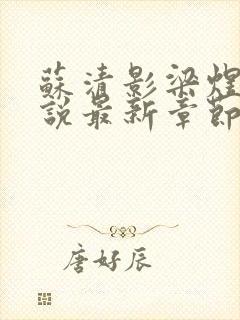 蘇清影梁煜
說最新章節
唐好辰